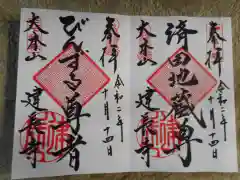 奉拝
令和二年
十月十四日
済田地蔵尊
大本山
建長寺
奉拝
令和二年
十月十四日
びんずる尊者
大本山
建長寺